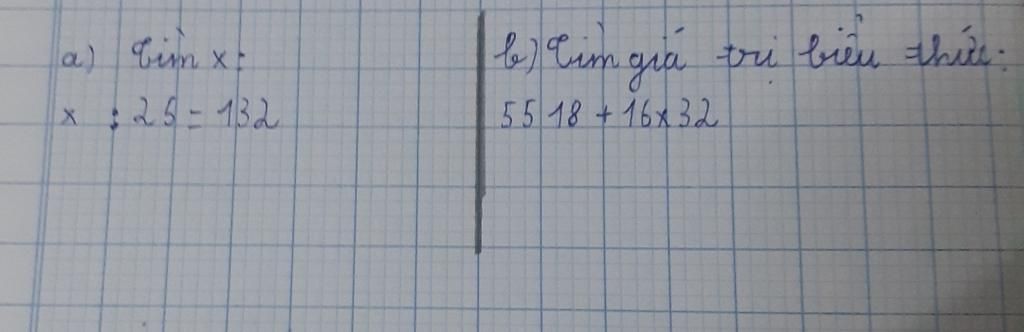 a) Tìm x:
x : 25 = 132
b) Tìm giá trị biểu thức:
5518 + 16 x 32